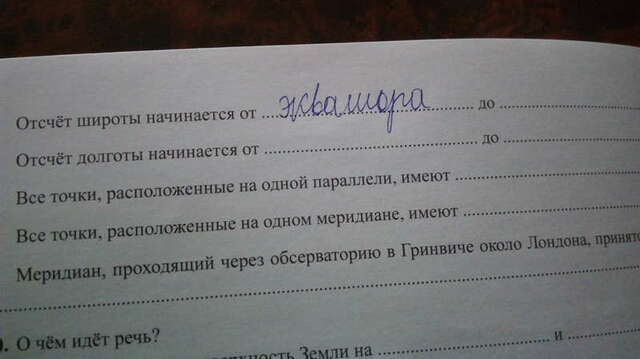 Отсчёт широты начинается от экватора до
Отсчёт долготы начинается от до
Все точки, расположенные на одной параллели, имеют
Все точки, расположенные на одном меридиане, имеют
Меридиан, проходящий через обсерваторию в Гринвиче около Лондона, принято
О чём идёт речь?
Земли на и